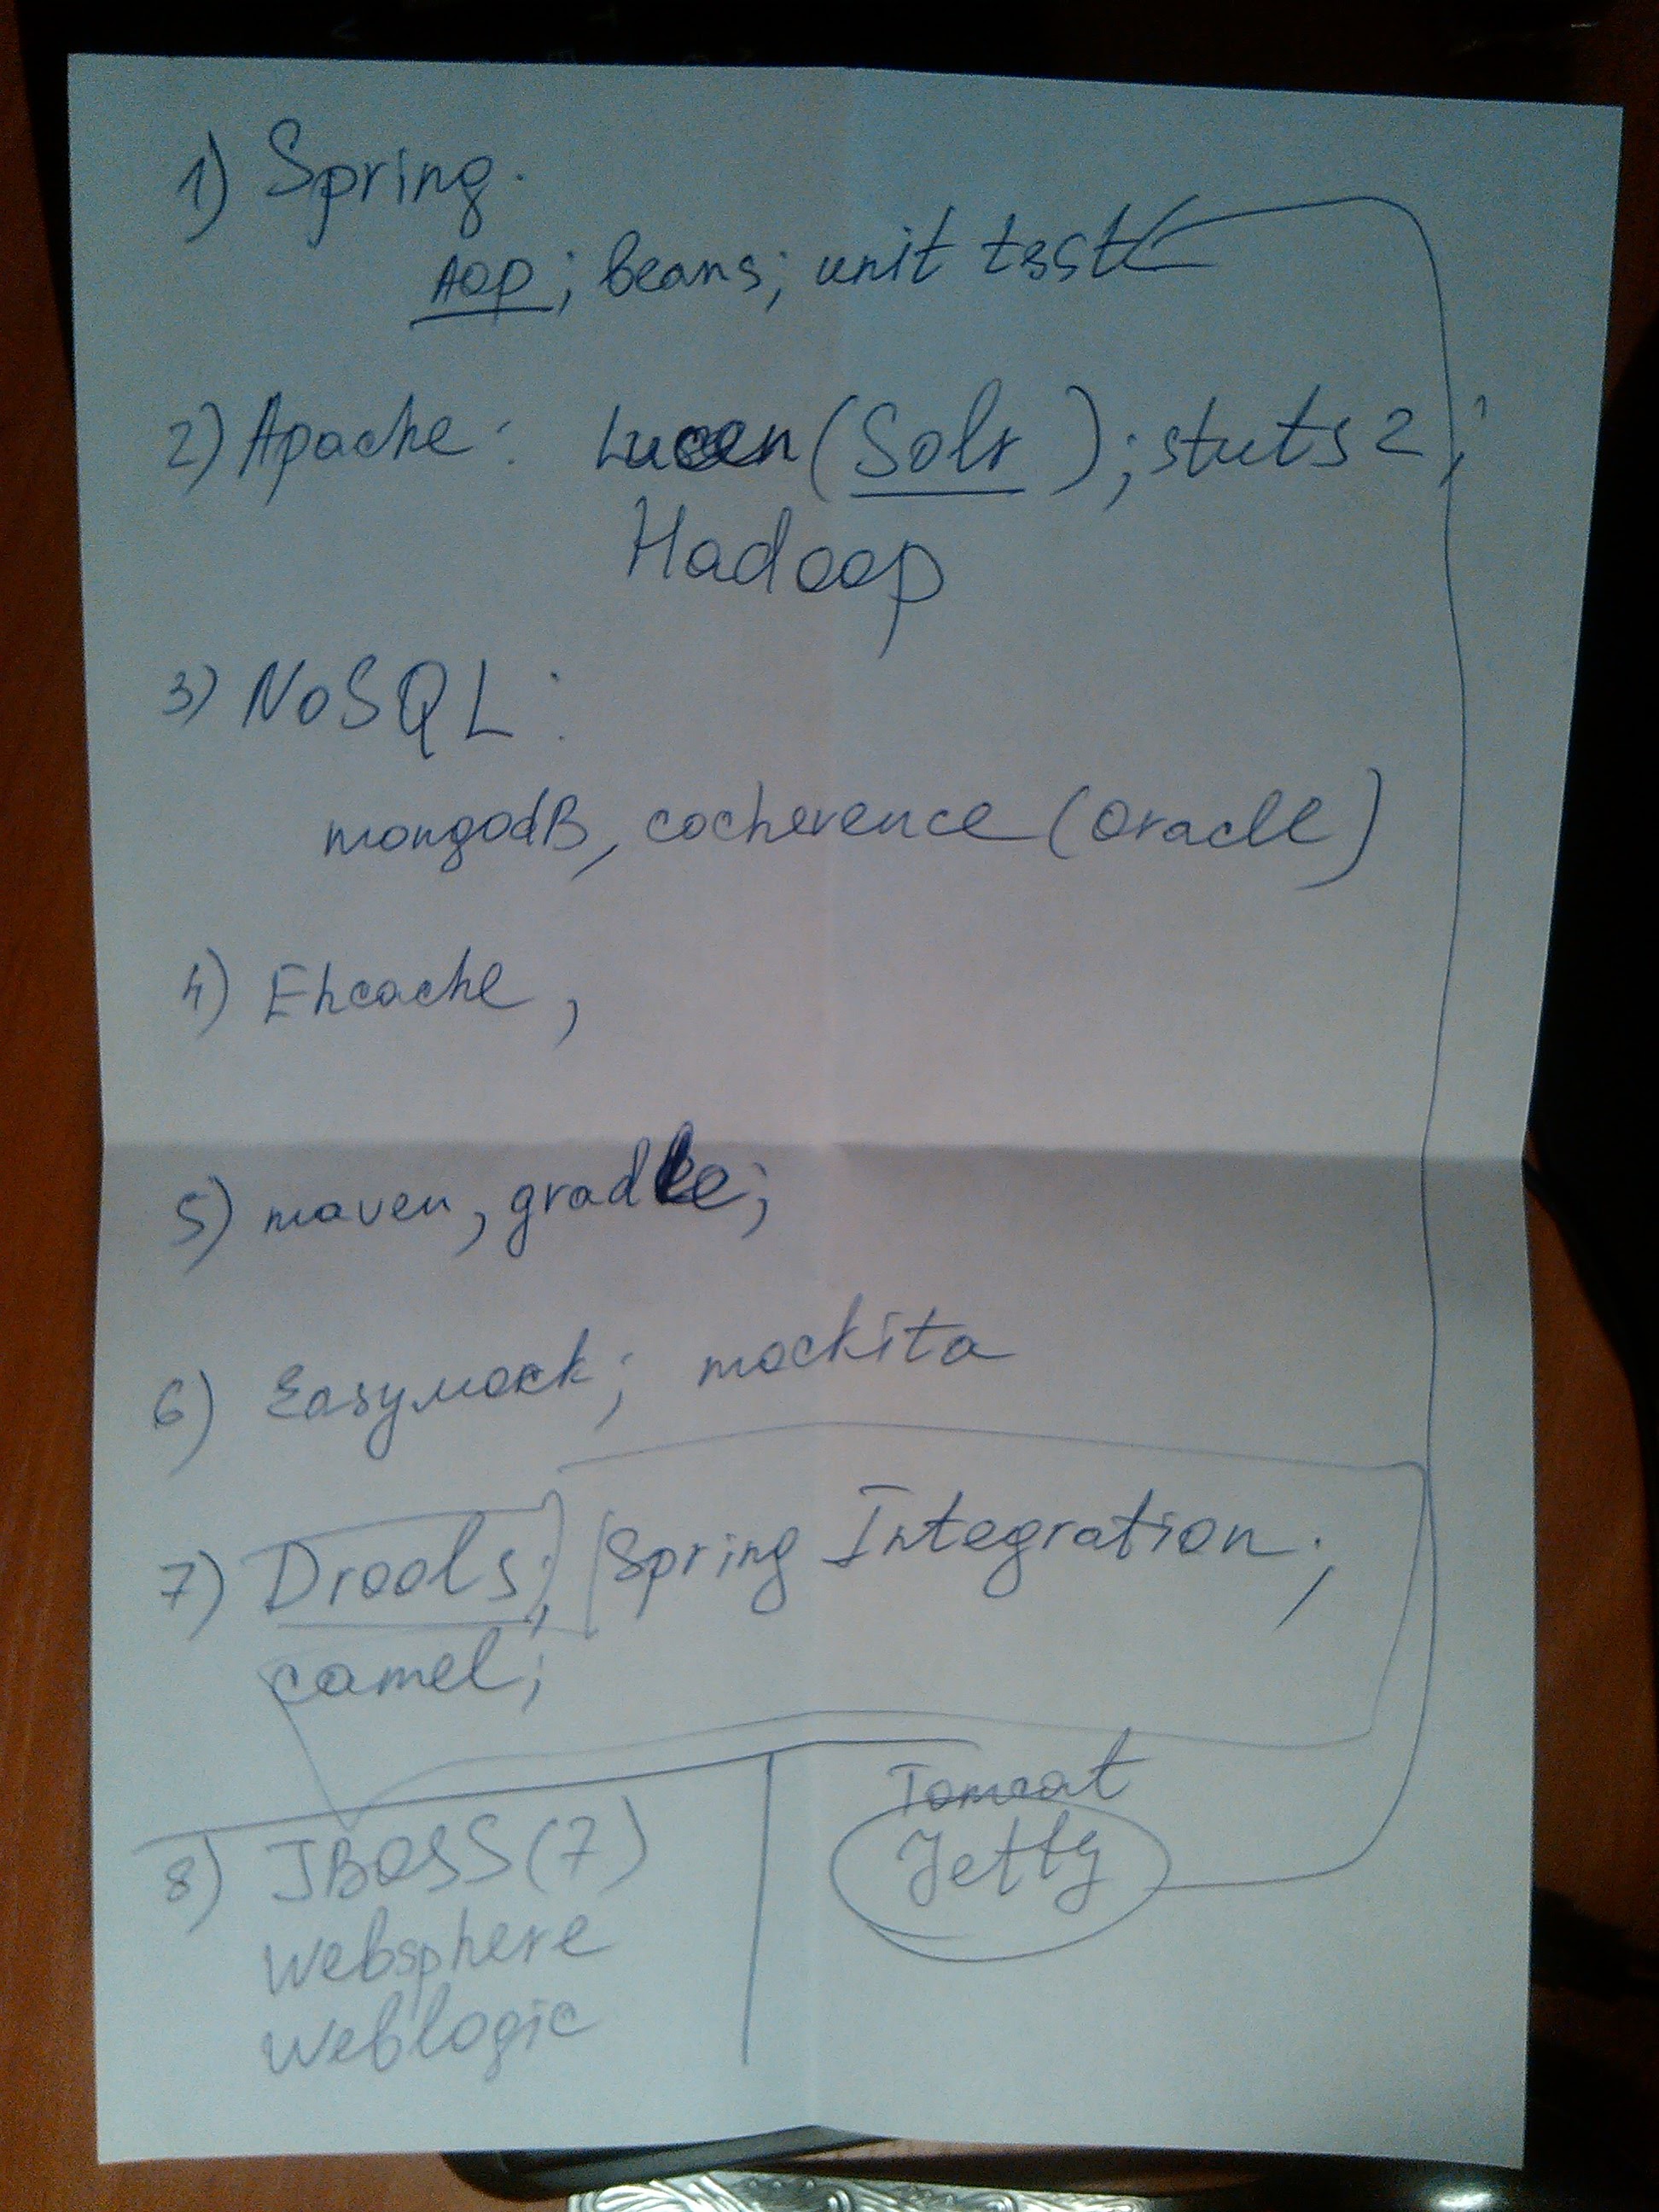 1) Spring.
AOP; beans; unit test
2) Apache: Lucen (Solr); stuts 2;
Hadoop
3) NoSQL:
mongodB, cocherence (oracle)
4) Ehcache,
5) maven, gradle;
6) Easymock; mockita
7) Drools; Spring Integration;
camel;
8) JBOSS(7)
websphere
weblogic
Tomcat
Jetty